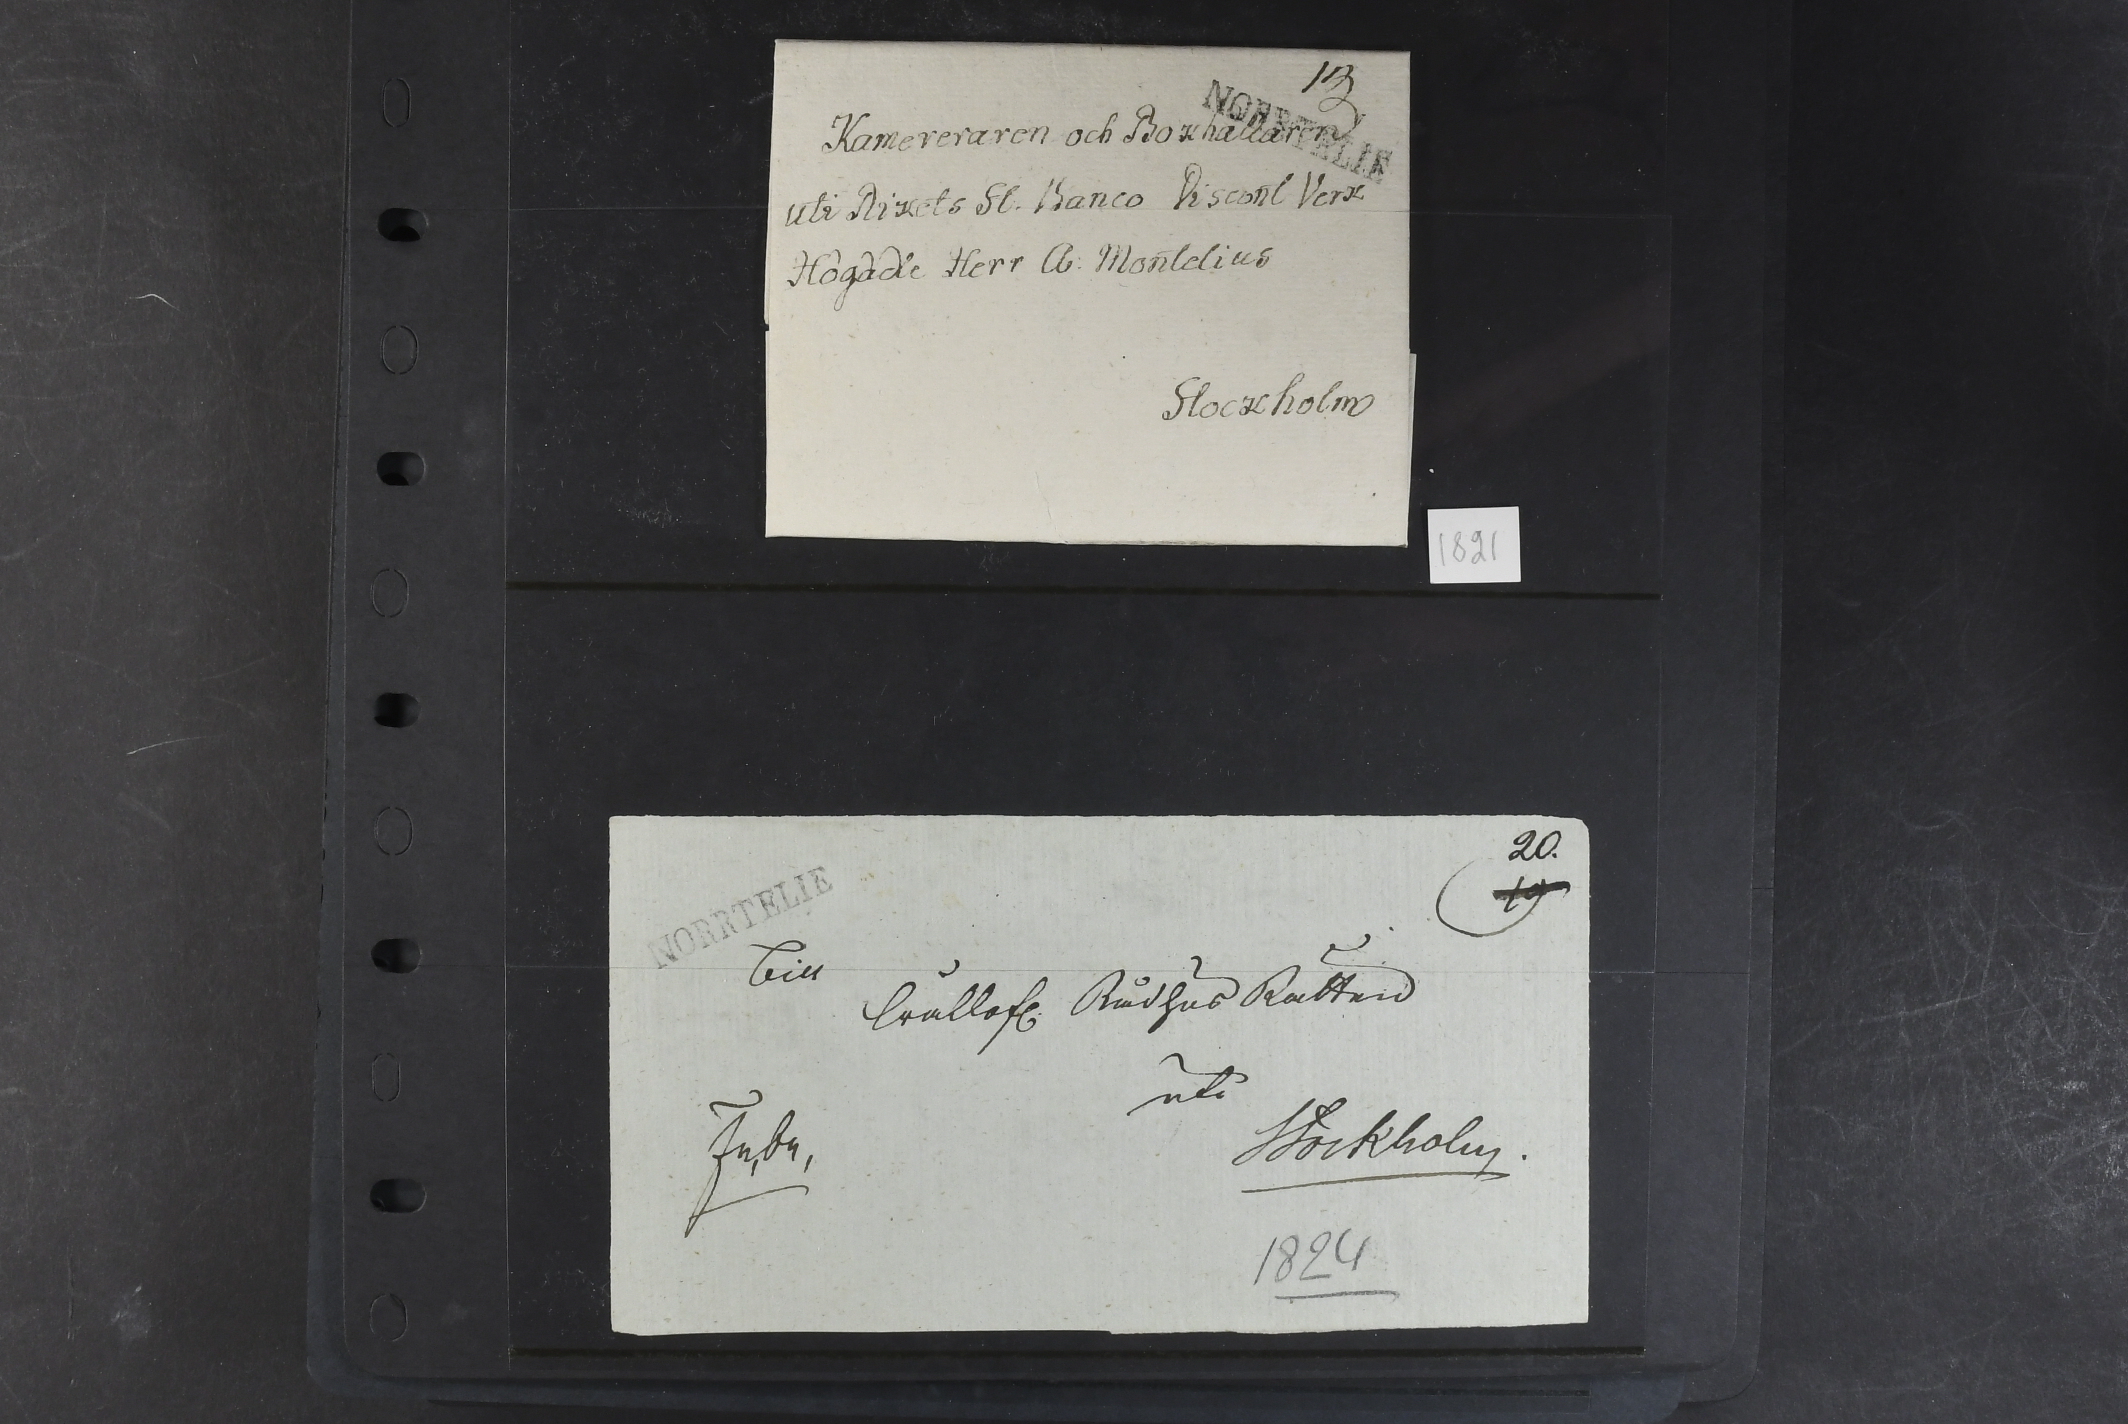 13
NORRTELIE
Kamereraren och Boxhallaren
uti Rixets St. Banco Discont Verx
Högäde Herr A: Montelius
Stockholm
1821
20.
19
NORRTELIE
Till
Rådhus Rätten
uti
Stockholm.
1824